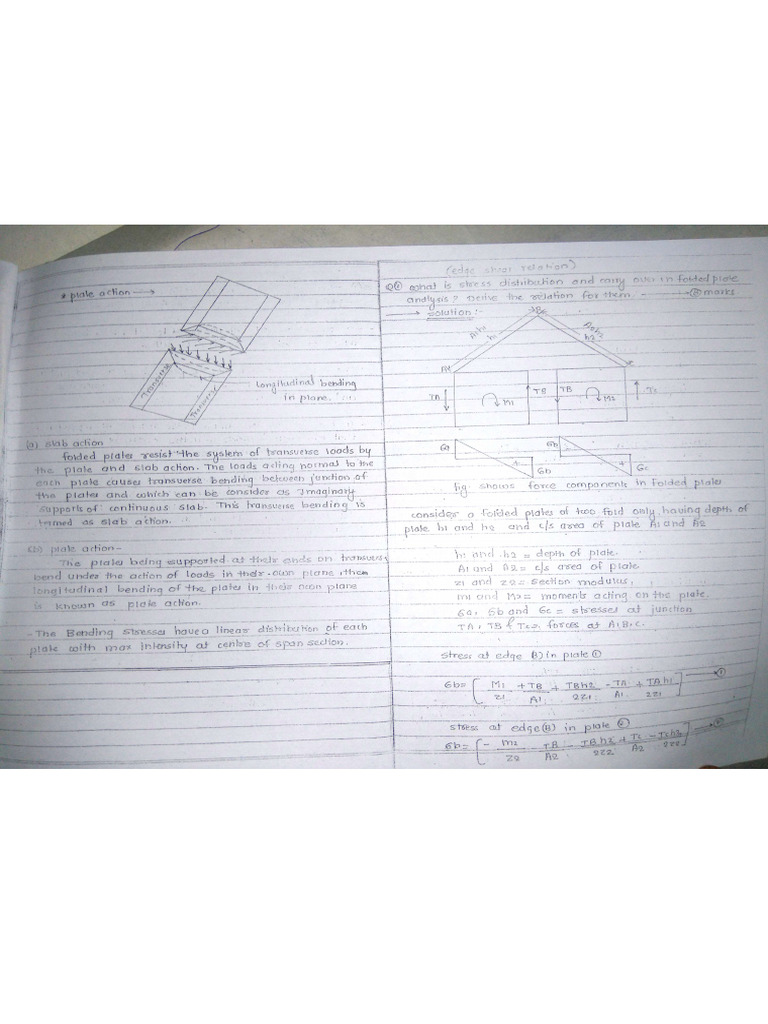 * plate action →
Transverse
Transverse
Longitudinal bending
in plane.
(a) slab action
folded plates resist the system of transverse loads by
the plate and slab action. The loads acting normal to the
each plate causes transverse bending between junction of
the plates and which can be consider as Imaginary
supports of continuous slab. This transverse bending is
termed as slab action.
(b) plate action-
The plates being supported at their ends on transvers
bend under the action of loads in their own plane, then
longitudinal bending of the plates in their own plane
is known as plate action.
- The Bending stresses have a linear distribution of each
plate with max intensity at centre of span section.
(edge shear relation)
what is stress distribution and carry over in folded plate
analysis? Derive the relation for them. → 8 marks
→ solution:-
h1
h2
TA
M1
TB
TB
M2
Tc
6b
6b
6c
fig. shows force components in folded plates
consider a folded plates of two fold only, having depth of
plate h1 and h2 and c/s area of plate A1 and A2
h1 and h2 = depth of plate.
A1 and A2 = c/s area of plate
z1 and z2 = section modulus,
m1 and M2 = moments acting on the plate.
6a, 6b and 6c = stresses at junction
TA, TB & Tc = forces at A,B,C.
stress at edge B) in plate ①
6b = [ M1/z1 + TB/A1 + TBh2/2z1 - TA/A1 + TAh1/2z1 ] → ①
stress at edge (B) in plate ②
6b = [ - M2/z2 - TB/A2 - TBh2/2z2 + Tc/A2 - Tch2/2z2 ] → ②